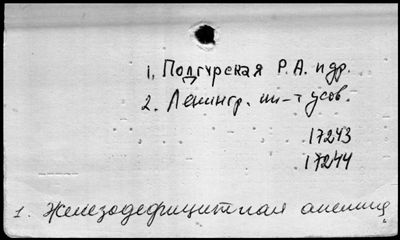 1, Подгурская Р.А. и др.
2. Ленингр. ин-т усов.
17243
17244
1. Железодефицитная анемия